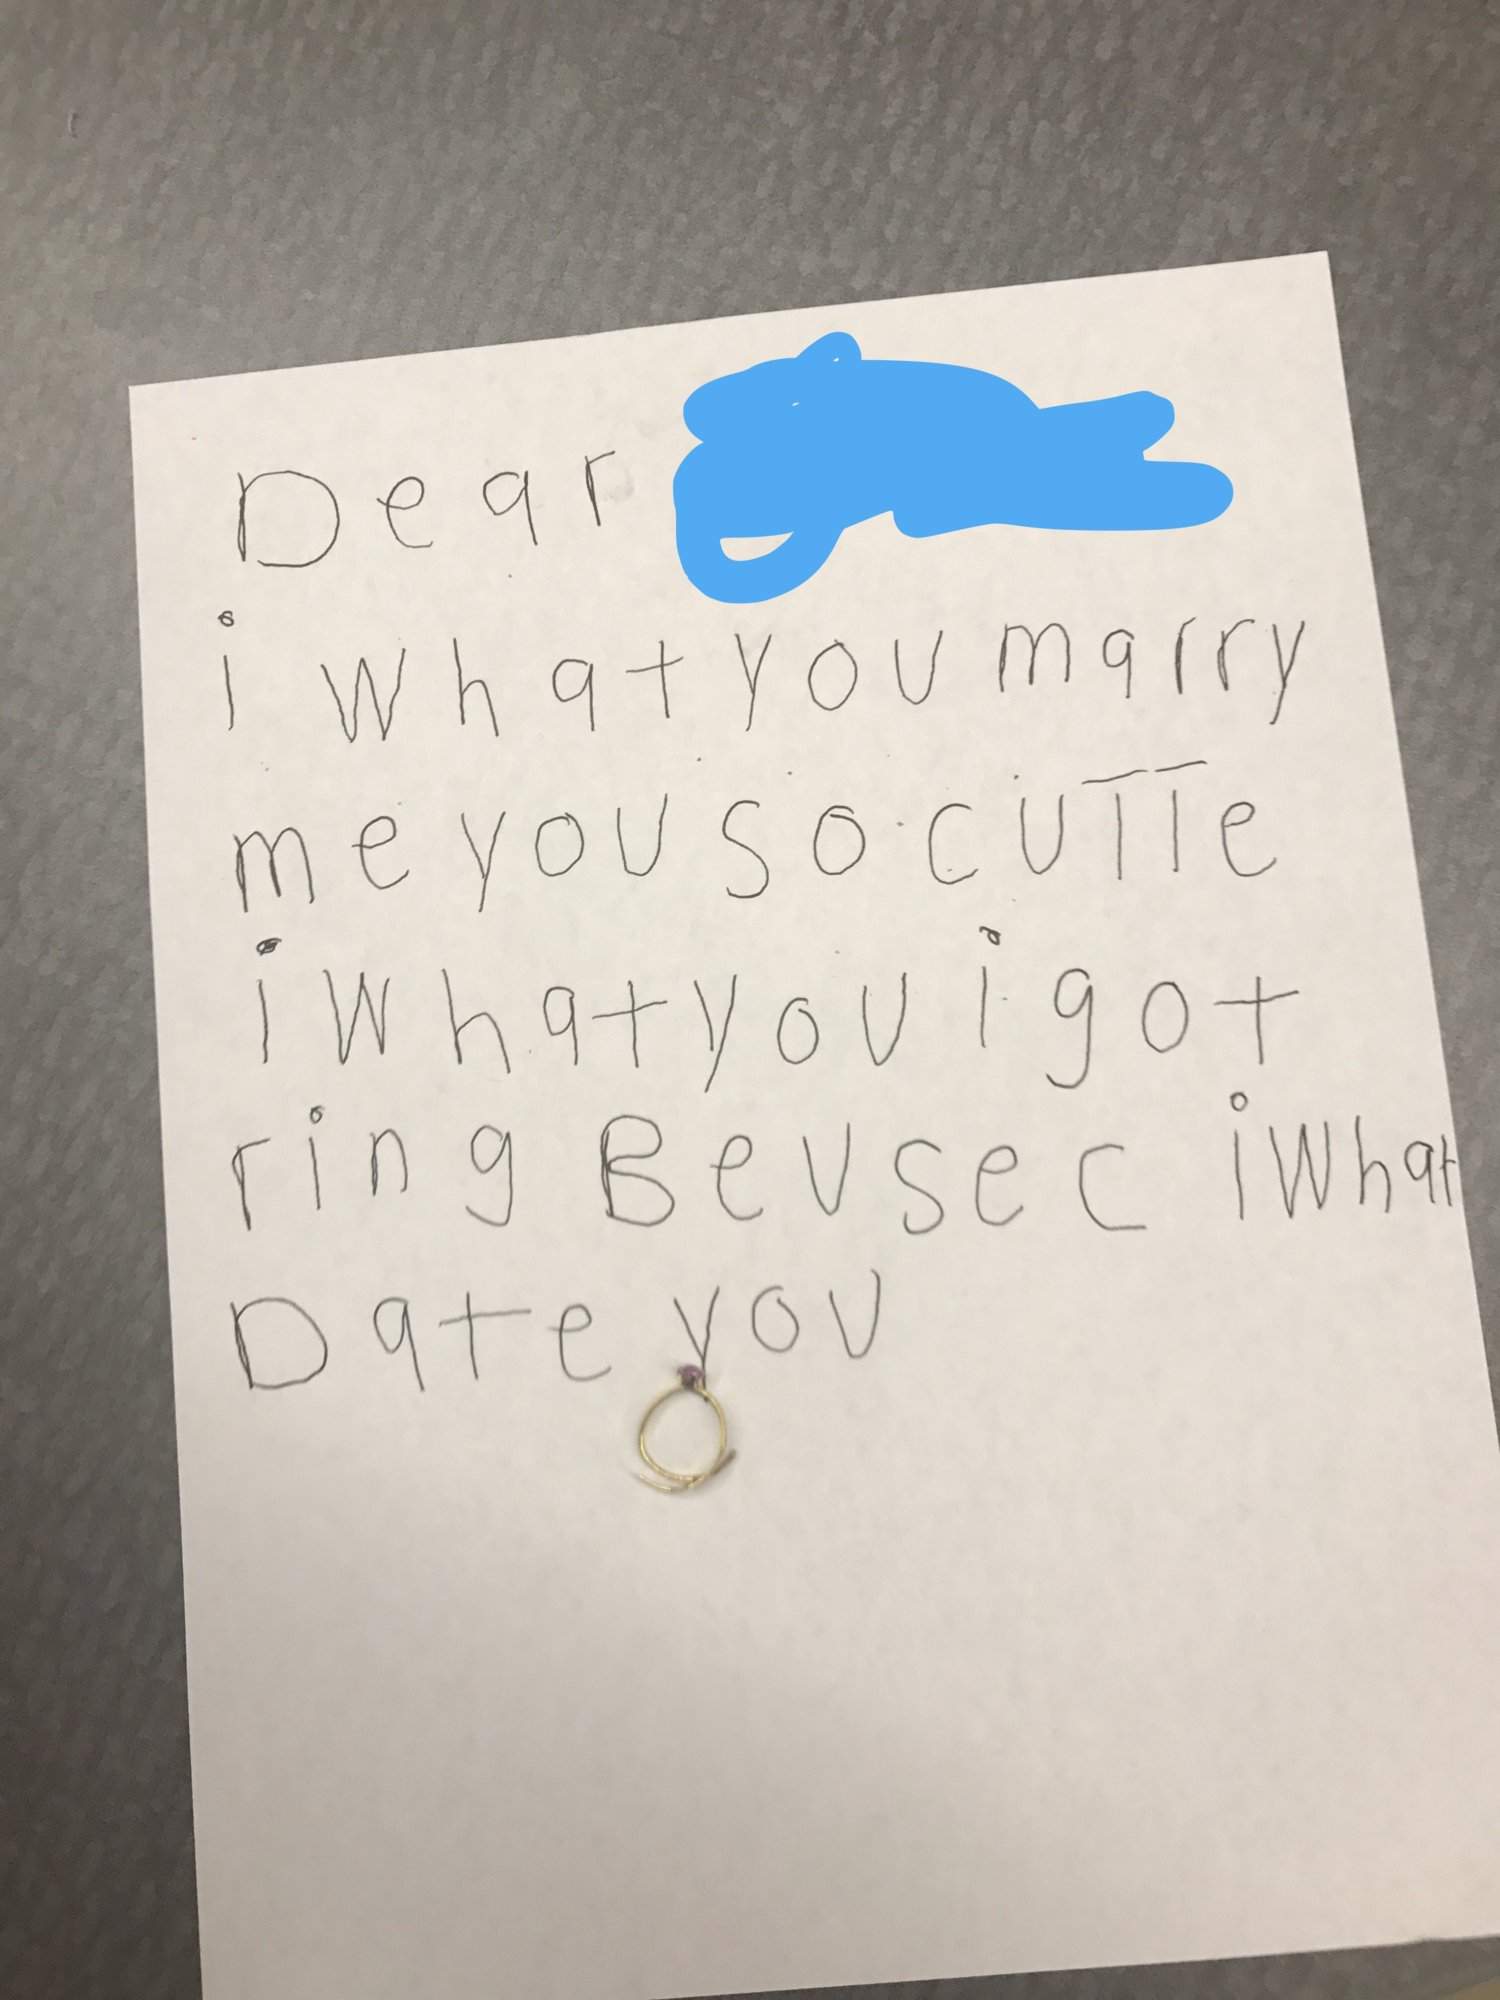 Dear
i what you marry
me you so cutte
i what you i got
ring Beusec i what
Date you